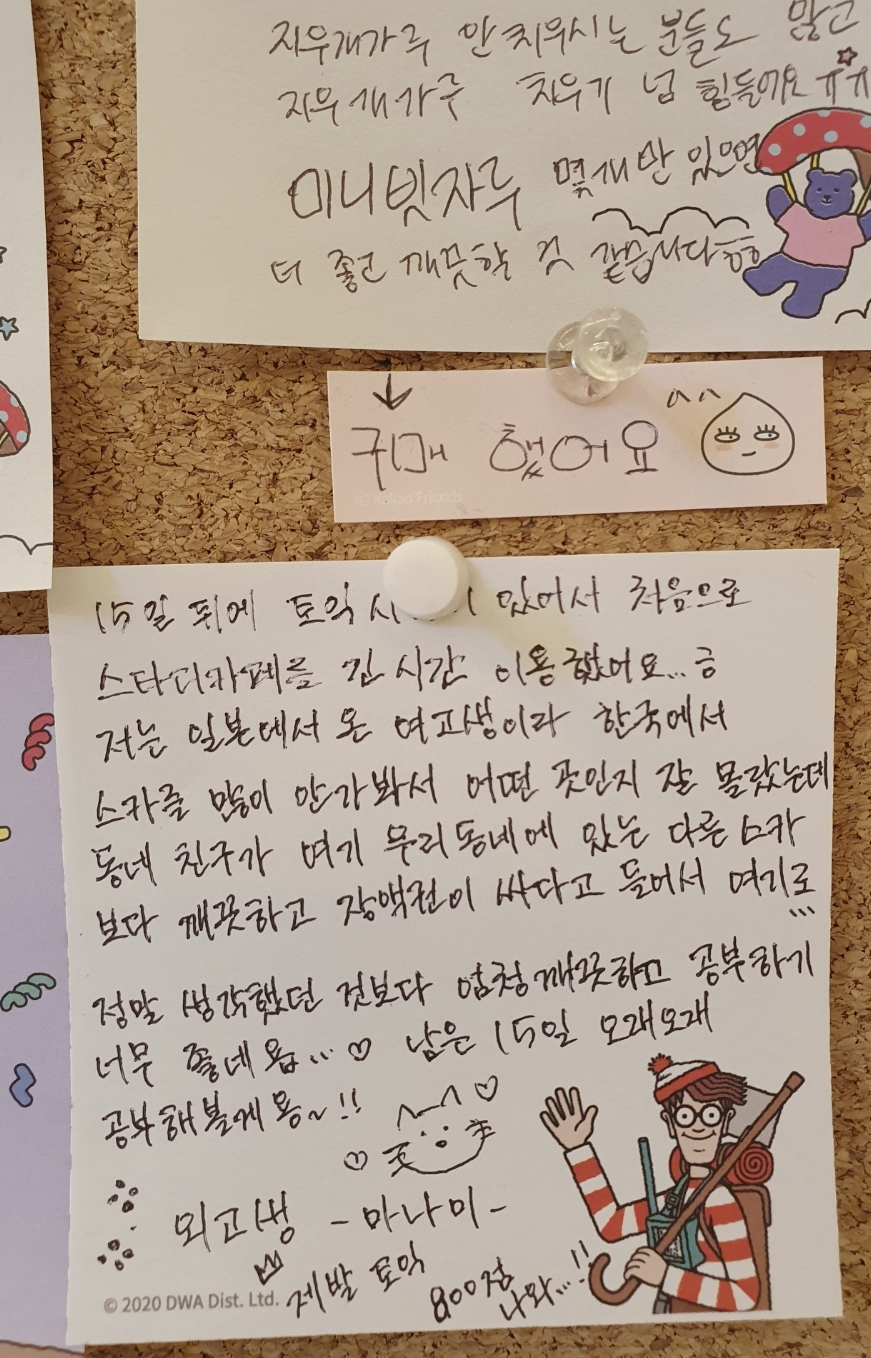 지우개가루 안 치우시는 분들도 많고
지우개가루 치우기 넘 힘들어요 ㅠㅠ
미니빗자루 몇개만 있으면
더 좋고 깨끗할 것 같습니다 ㅎㅎ
↓
구매 했었어요 ^^
© Kakao Friends
15일 뒤에 토익 시 있어서 처음으로
스타디카페를 긴 시간 이용했어요...ㅎ
저는 일본에서 온 여고생이라 한국에서
스카를 많이 안가봐서 어떤 곳인지 잘 몰랐는데
동네 친구가 여기 우리동네에 있는 다른 스카
보다 깨끗하고 장액권이 싸다고 들어서 여기로...
정말 생각했던 것보다 엄청깨끗하고 공부하기
너무 좋네욥...♡ 남은 15일 오래오래
공부해볼게용~!!
외고생 -마나미-
제발 토익 800점 나와...!!
© 2020 DWA Dist. Ltd.